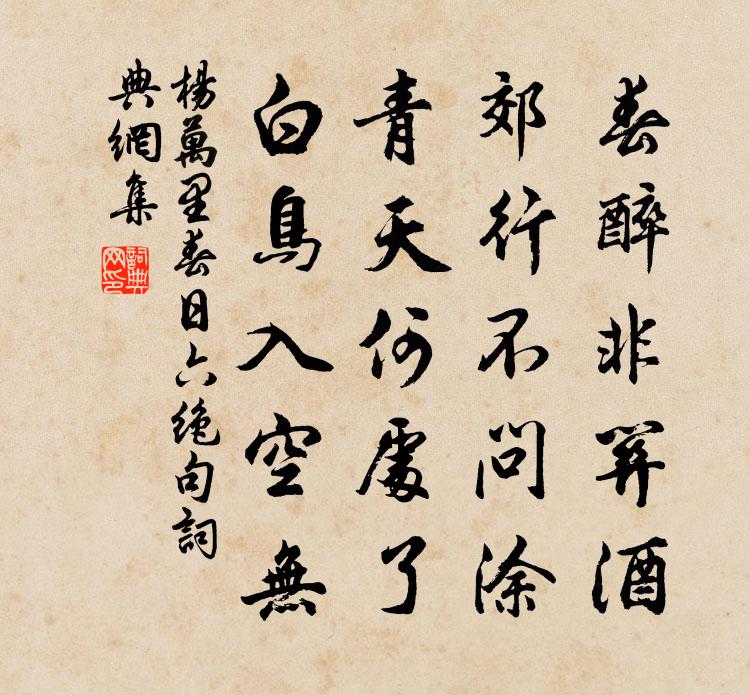 春醉非關酒
郊行不問涂
青天何處了
白鳥入空無
楊萬里春日六絕句詞
典網集
詞典
网印